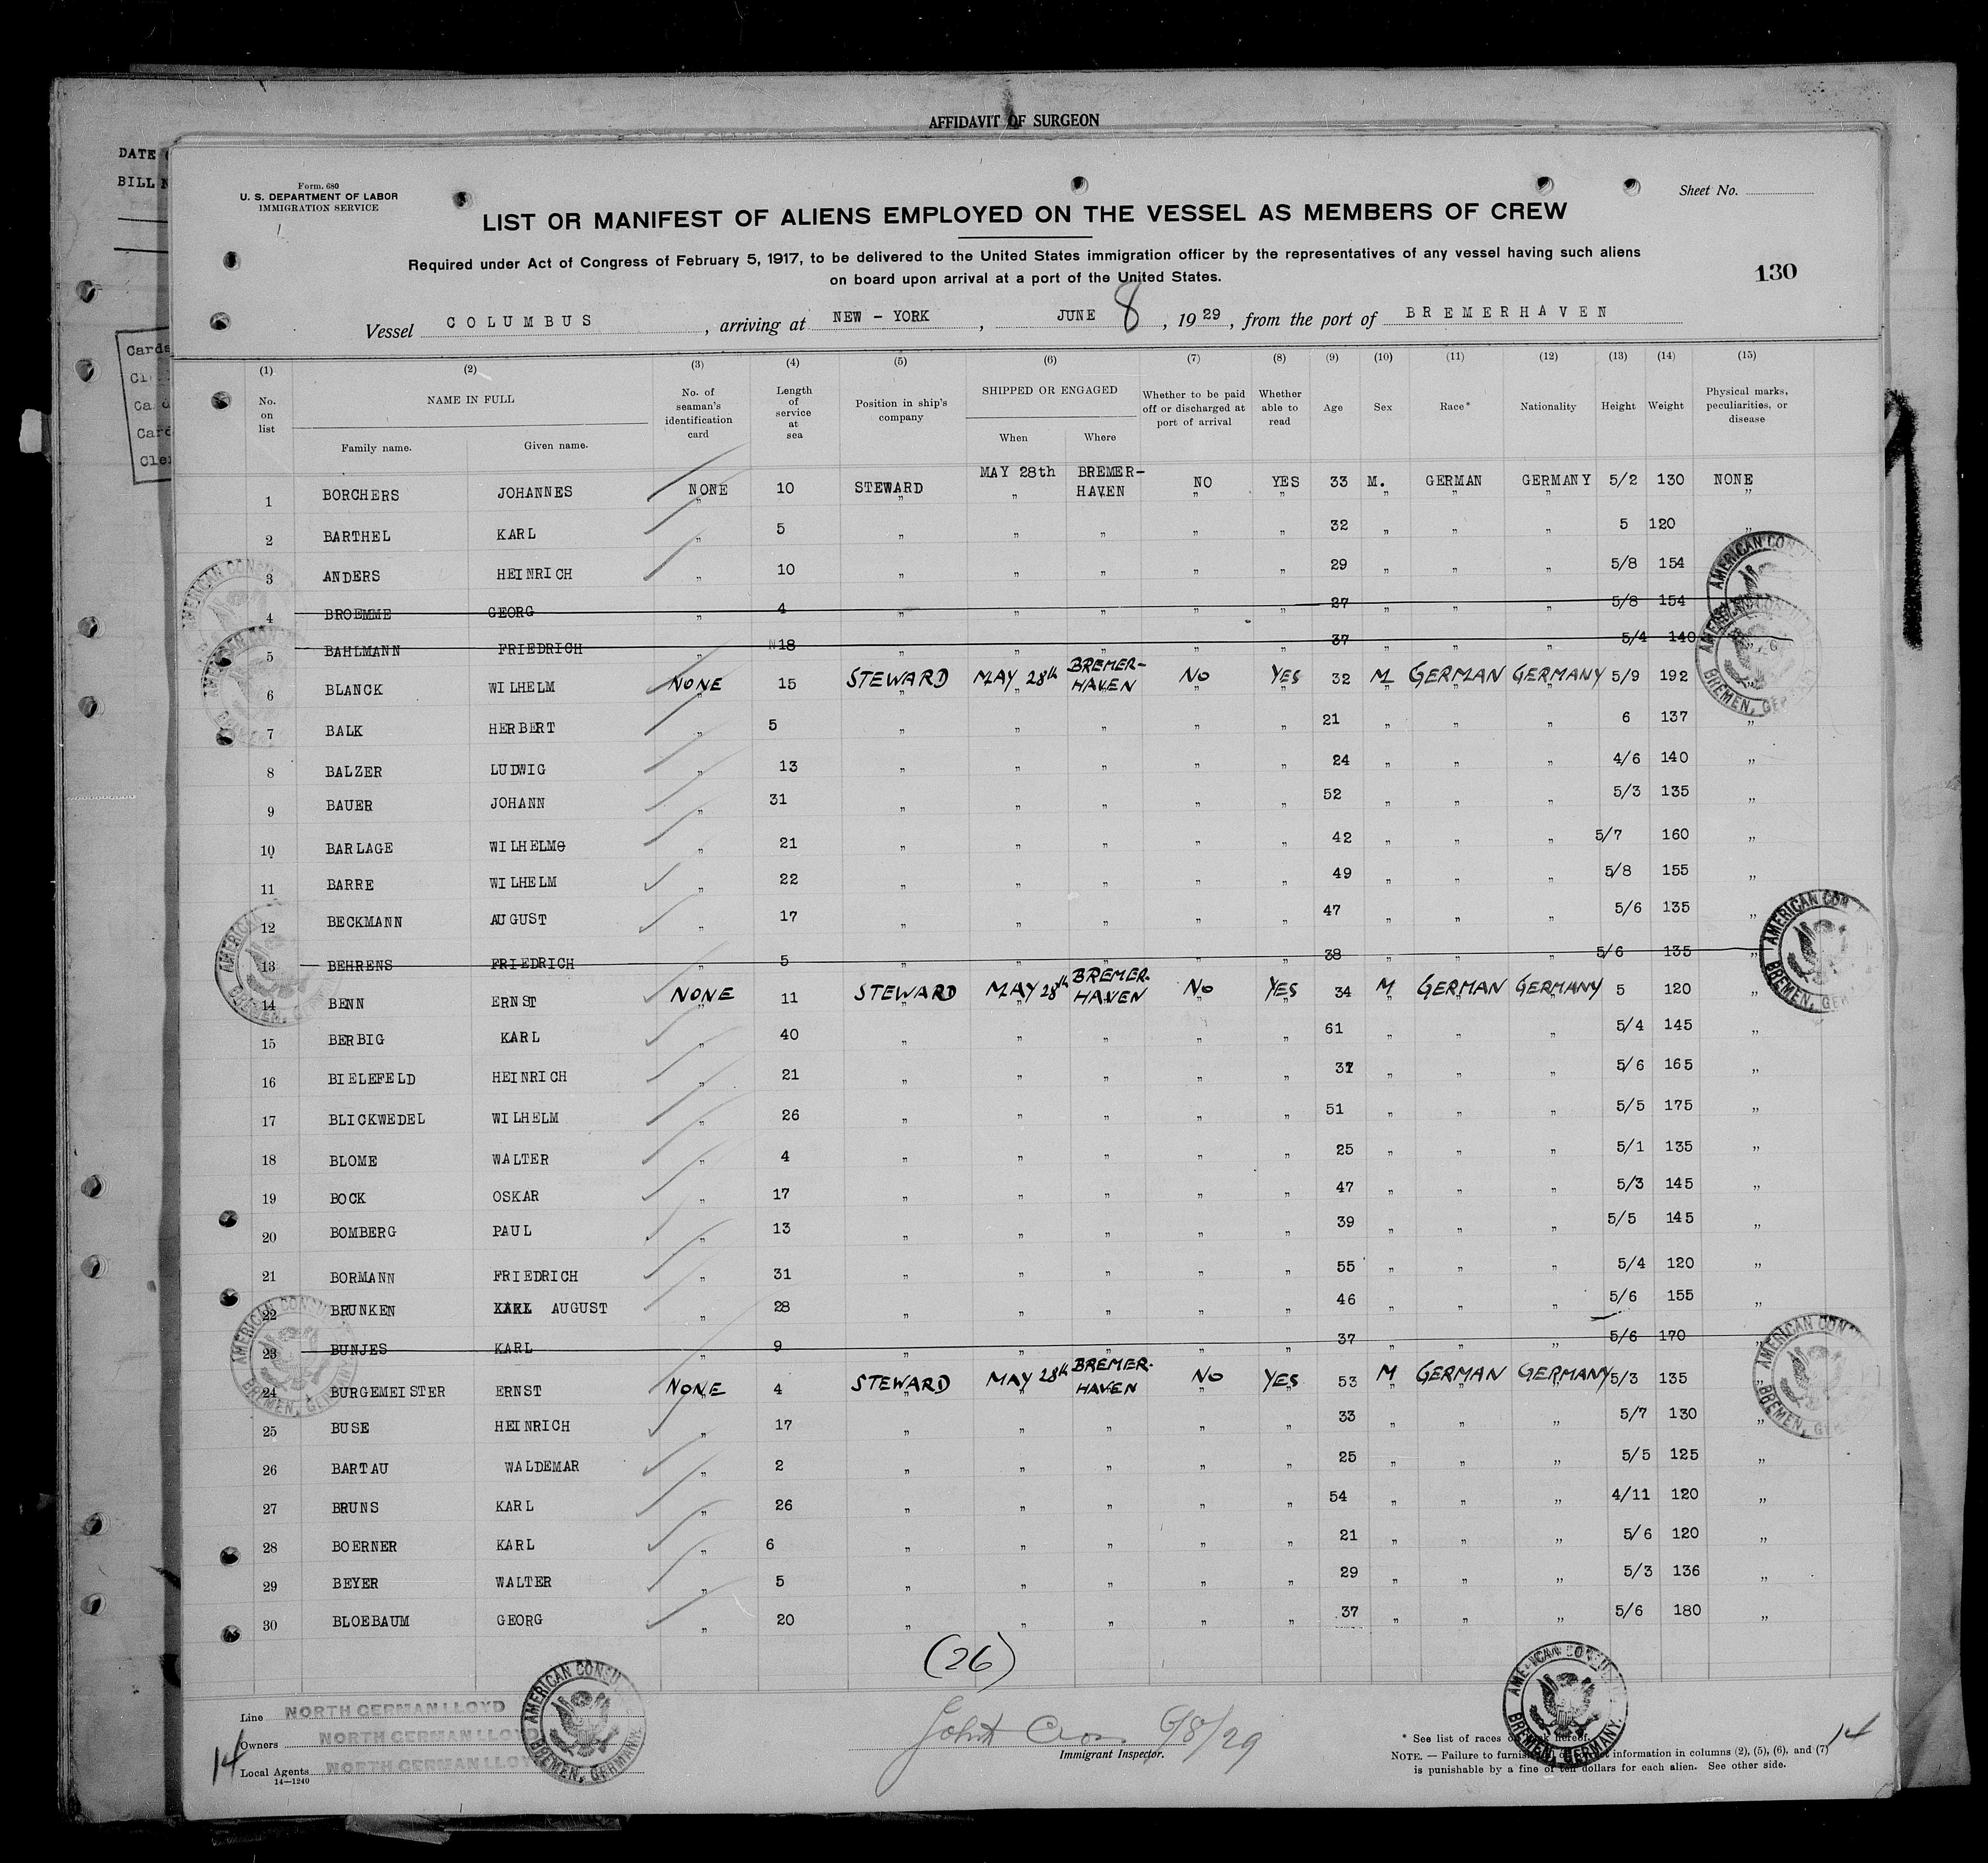 AFFIDAVIT OF SURGEON
DATE
BILL N
Form. 680
U. S. DEPARTMENT OF LABOR
IMMIGRATION SERVICE
Sheet No.
LIST OR MANIFEST OF ALIENS EMPLOYED ON THE VESSEL AS MEMBERS OF CREW
Required under Act of Congress of February 5, 1917, to be delivered to the United States immigration officer by the representatives of any vessel having such aliens
on board upon arrival at a port of the United States.
130
Vessel COLUMBUS, arriving at NEW - YORK, JUNE 8, 1929, from the port of BREMERHAVEN
(1) (2) (3) (4) (5) (6) (7) (8) (9) (10) (11) (12) (13) (14) (15)
No. on list NAME IN FULL Family name. Given name. No. of seaman's identification card Length of service at sea Position in ship's company SHIPPED OR ENGAGED When Where Whether to be paid off or discharged at port of arrival Whether able to read Age Sex Race* Nationality Height Weight Physical marks, peculiarities, or disease
1 BORCHERS JOHANNES NONE 10 STEWARD MAY 28th BREMER-HAVEN NO YES 33 M. GERMAN GERMANY 5/2 130 NONE
2 BARTHEL KARL " 5 " " " " " 32 " " " 5 120 "
3 ANDERS HEINRICH " 10 " " " " " 29 " " " 5/8 154
4 BROEMME GEORG " 4 " " " " " 27 " " " 5/8 154
5 BAHLMANN FRIEDRICH " 18 " " " " " 37 " " " 5/4 140
6 BLANCK WILHELM NONE 15 STEWARD MAY 28th BREMER-HAVEN NO YES 32 M GERMAN GERMANY 5/9 192
7 BALK HERBERT " 5 " " " " " 21 " " " 6 137 "
8 BALZER LUDWIG " 13 " " " " " 24 " " " 4/6 140 "
9 BAUER JOHANN " 31 " " " " " 52 " " " 5/3 135 "
10 BARLAGE WILHELM " 21 " " " " " 42 " " " 5/7 160 "
11 BARRE WILHELM " 22 " " " " " 49 " " " 5/8 155 "
12 BECKMANN AUGUST " 17 " " " " " 47 " " " 5/6 135 "
13 BEHRENS FRIEDRICH " 5 " " " " " 38 " " " 5/6 135 "
14 BENN ERNST NONE 11 STEWARD MAY 28th BREMER-HAVEN NO YES 34 M GERMAN GERMANY 5 120 "
15 BERBIG KARL " 40 " " " " " 61 " " " 5/4 145 "
16 BIELEFELD HEINRICH " 21 " " " " " " " " 5/6 165 "
17 BLICKWEDEL WILHELM " 26 " " " " " 51 " " " 5/5 175 "
18 BLOME WALTER " 4 " " " " " 25 " " " 5/1 135 "
19 BOCK OSKAR " 17 " " " " " 47 " " " 5/3 145 "
20 BOMBERG PAUL " 13 " " " " " 39 " " " 5/5 145 "
21 BORMANN FRIEDRICH " 31 " " " " " 55 " " " 5/4 120 "
22 BRUNKEN KARL AUGUST " 28 " " " " " 46 " " " 5/6 155 "
23 BUNJES KARL " 9 " " " " " 37 " " " 5/6 170 "
24 BURGEMEISTER ERNST NONE 4 STEWARD MAY 28th BREMER-HAVEN NO YES 53 M GERMAN GERMANY 5/3 135 "
25 BUSE HEINRICH " 17 " " " " " 33 " " " 5/7 130 "
26 BARTAU WALDEMAR " 2 " " " " " 25 " " " 5/5 125 "
27 BRUNS KARL " 26 " " " " " 54 " " " 4/11 120 "
28 BOERNER KARL " 6 " " " " " 21 " " " 5/6 120 "
29 BEYER WALTER " 5 " " " " " 29 " " " 5/3 136 "
30 BLOEBAUM GEORG " 20 " " " " " 37 " " " 5/6 180 "
(26)
Line NORTH GERMAN LLOYD
Owners NORTH GERMAN LLOYD
Local Agents NORTH GERMAN LLOYD
14—1240
14
AMERICAN CONSU
BREMEN, GERMANY.
6/8/29
Immigrant Inspector.
AMERICAN CONSU
BREMEN, GERMANY.
* See list of races on back hereof.
NOTE. — Failure to furnish full or correct information in columns (2), (5), (6), and (7)
is punishable by a fine of ten dollars for each alien. See other side.
14